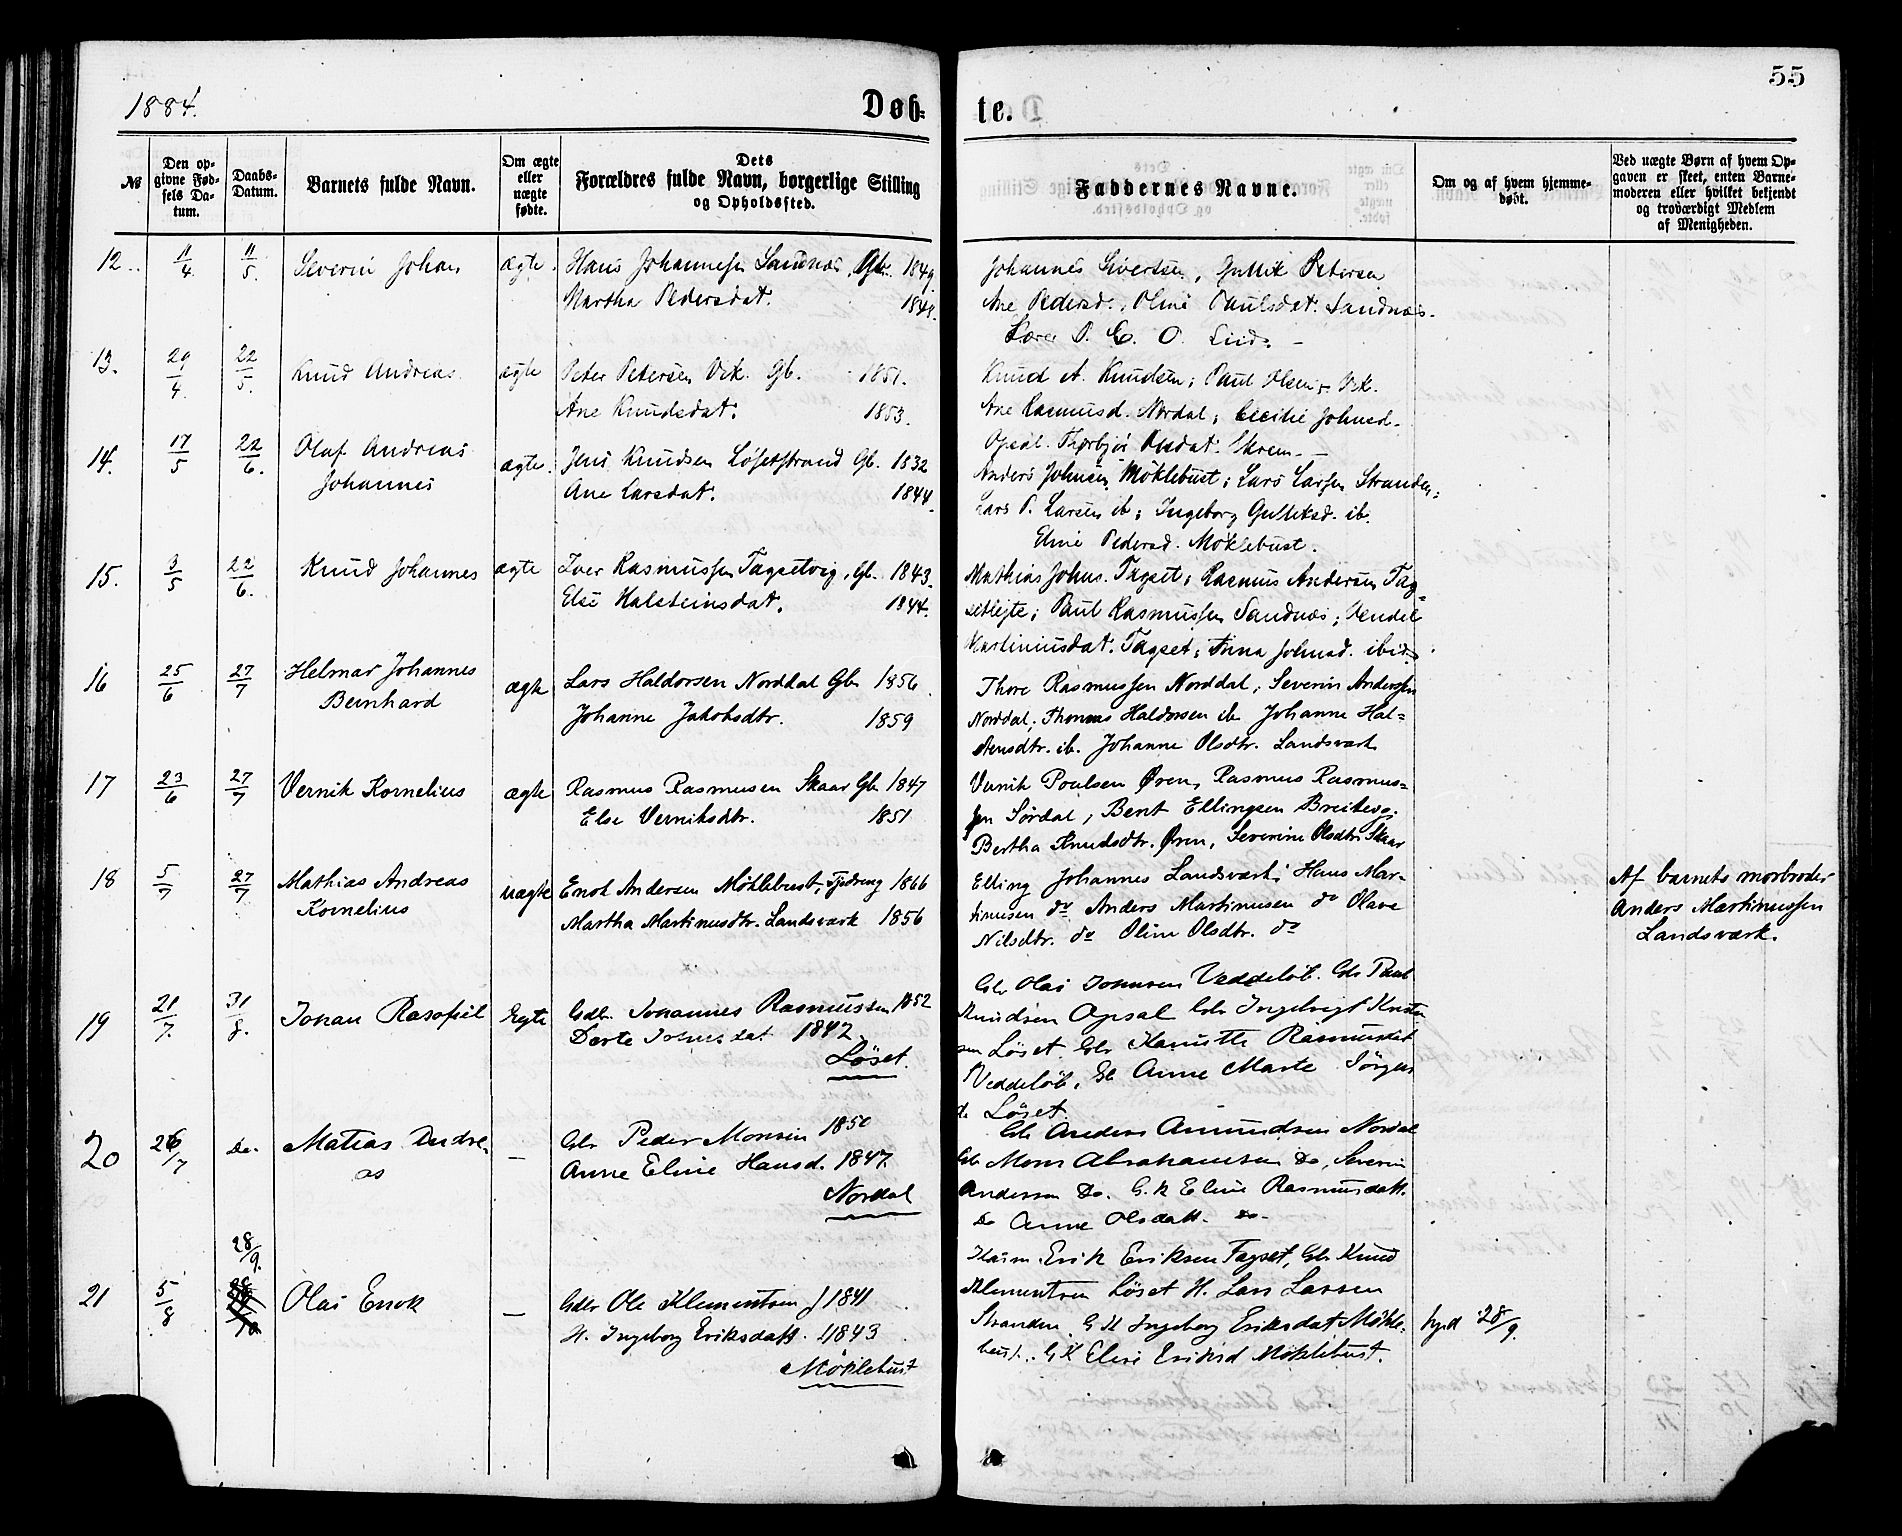 1884.
Døb-
te.
55
№
Den opgivne Fødsels Datum.
Daabs-Datum.
Barnets fulde Navn.
Om ægte eller uægte fødte.
Dets Forældres fulde Navn, borgerlige Stilling og Opholdsfted.
Faddernes Navne.
Om og af hvem hjemmedøbt.
Ved uægte Børn af hvem Opgaven er skeet, enten Barnemoderen eller hvilket bekjendt og troværdigt Medlem af Menigheden.
12. 11/4. 11/5. Severin Johan ægte. Hans Johannesen Sandnæs, Gb. 1849.
Martha Pedersdat.
Johannes Sivertsen, Gullik Petersen
Ane Pedersd., Oline Paulsdat. Sandnæs.
Lærer P. E. O. Lind. –
13. 29/4. 22/5. Knud Andreas ægte Peter Petersen Vik. Gb. 1851.
Ane Knudsdat. 1853.
Knud A. Knudsen; Paul Olsen, Vik.
Ane Rasmusd. Nordal; Cecilie Johnsd.
Opsal. Thorbjør Skrem. –
14. 17/5 22/6. Olaf Andreas
Johannes
ægte. Jens Knudsen Løsetstrand Gb. 1832
Ane Larsdat. 1844.
Anders Johnsen Møklebust; Lars Larsen Stranden;
Lars P. Larsen ib; Ingeborg Gulliksd. ib.
Eline Pedersd. Møklebust.
15. 3/5 22/6. Knud Johannes ægte Iver Rasmussen Tagsetvig, Gb. 1843.
Else Halsteinsdat. 1844.
Mathias Johns. Tagset; Rasmus Andersen Tag-
setlejte; Paul Rasmussen Sandnæs; Vendel
Martiniusdat. Tagset; Anna Johnsd. ibid.
16 25/6 27/7 Helmar Johannes
Bernhard
ægte Lars Haldorsen Norddal Gb 1856
Johanne Jakobsdtr. 1859
Thore Rasmussen Norddal, Severin Andersen
Norddal, Thomas Haldorsen ib Johanne Hal-
stensdtr. ib. Johanne Olsdtr. Landsværk
17 23/6 27/7 Vernik Kornelius ægte Rasmus Rasmusen Skaar Gb 1847
Else Verniksdtr. 1851
Vernik Poulsen Øren, Rasmus Rasmus-
sen Sørdal, Bent Ellingsen Breiteig,
Bertha Knudsdtr. Øren, Severine Olsdtr Skaar
18 5/7 27/7 Mathias Andreas
Kornelius
uægte Enok Andersen Møklebust, Tjdreng 1866
Martha Martinusdtr. Landsværk 1856
Elling Johannes Landsværk; Hans Mar-
tinusen do Anders Martinusen do Olave
Nilsdtr. do Oline Olsdtr. do
Af barnets morbroder
Anders Martinussen
Landsværk.
19 21/7. 31/8. Johan Rasofiel Egte Gdbr. Johannes Rasmussen 1852
Dorte Johnsdat 1847
Løset.
Gbr Olai Johnsen Veddeløb. Gbr Paul
Knudsen Opsal Gbr Ingebrigt Knud
sen Løset. Gbr Hanitte Rasmusdat
Veddeløb, Gk Anne Marte Jörgens
d. Løset
20 26/7 Do. Matias Andre-
as
– Gbr Peder Monsen 1850
Anne Eline Hansd. 1847
Nordal
Gbr Anders Amundsen Nordal
Gbr Mons Abrahamsen Do, Severin
Andersen Do. G. K Eline Rasmusdatt.
Do Anne Olsdatt. Do
21 5/8 28/9. Olai Enok – Gdbr Ole Klementsen f 1841
H. Ingeborg Eriksdatt. f 1843
Møklebust
Erik Eriksen Tagset, Gbr Knud
Klementsen Løset H. Lars Larsen
Stranden G K Ingeborg Eriksdat Møkle-
bust. G K Eline Eriksd Møklebust.
hjd 28/9.